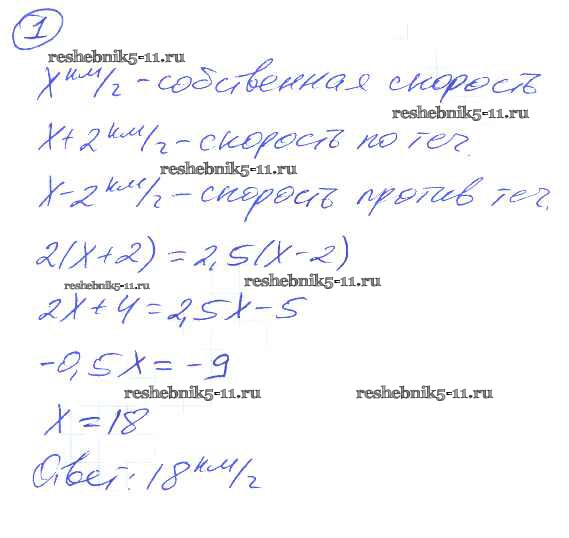 1
reshebnik5-11.ru
x км/г - собственная скорость
reshebnik5-11.ru
x+2 км/г - скорость по теч.
reshebnik5-11.ru
x-2 км/г - скорость против теч.
2(x+2)=2,5(x-2)
reshebnik5-11.ru
reshebnik5-11.ru
2x+4=2,5x-5
-0,5x=-9
reshebnik5-11.ru
reshebnik5-11.ru
x=18
Ответ: 18 км/г